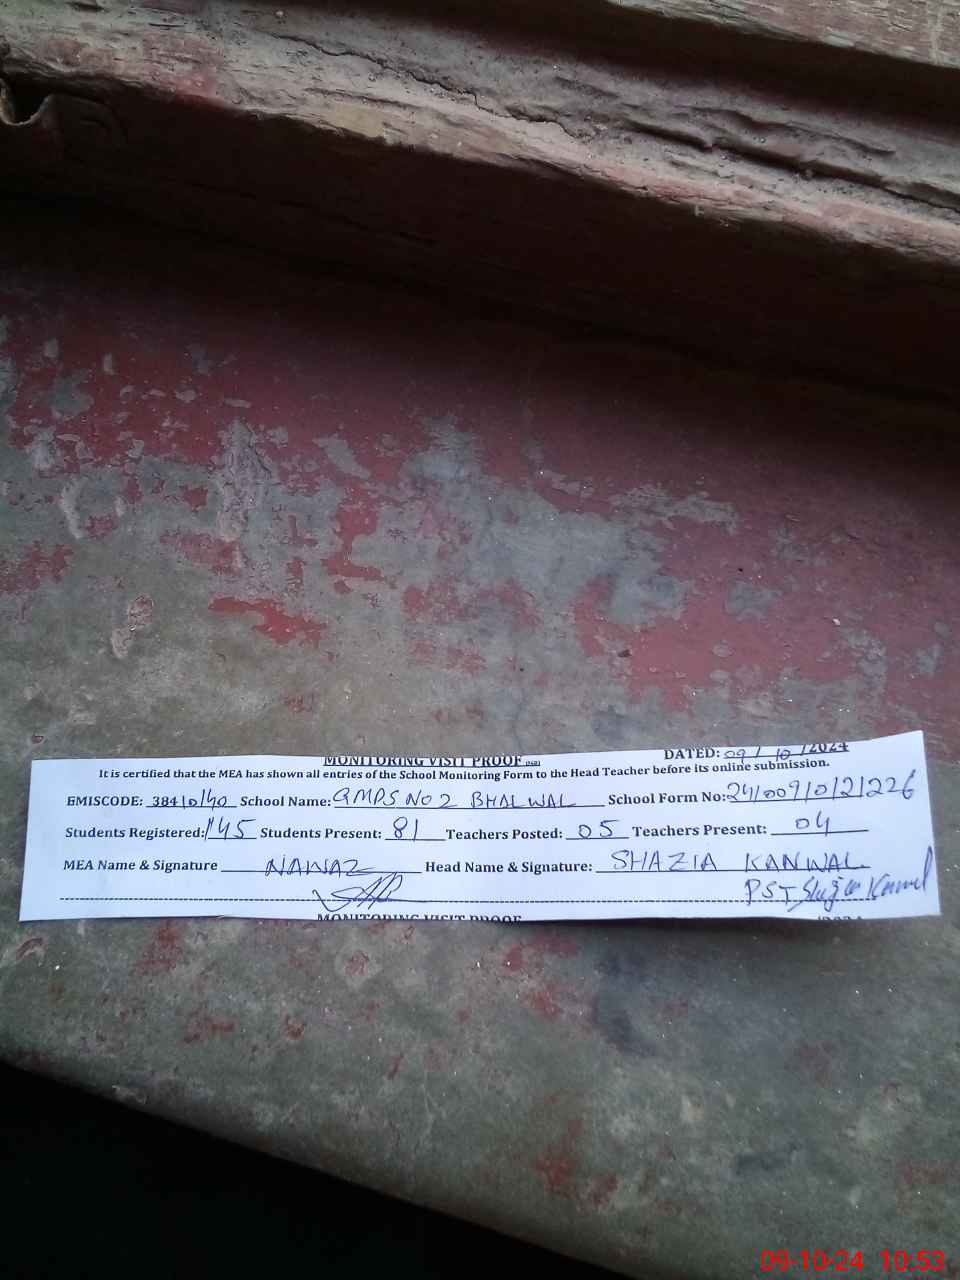 MONITORING VISIT PROOF
DATED: 09/ 10 /2024
It is certified that the MEA has shown all entries of the School Monitoring Form to the Head Teacher before its online submission.
EMISCODE: 38410140 School Name: GMPS NO 2 BHALWAL School Form No: 24100910121226
Students Registered: 145 Students Present: 81 Teachers Posted: 05 Teachers Present: 04
MEA Name & Signature NAWAZ Head Name & Signature: SHAZIA KANWAL
PST Shazia Kanwal
MONITORING VISIT PROOF
09-10-24 10:53